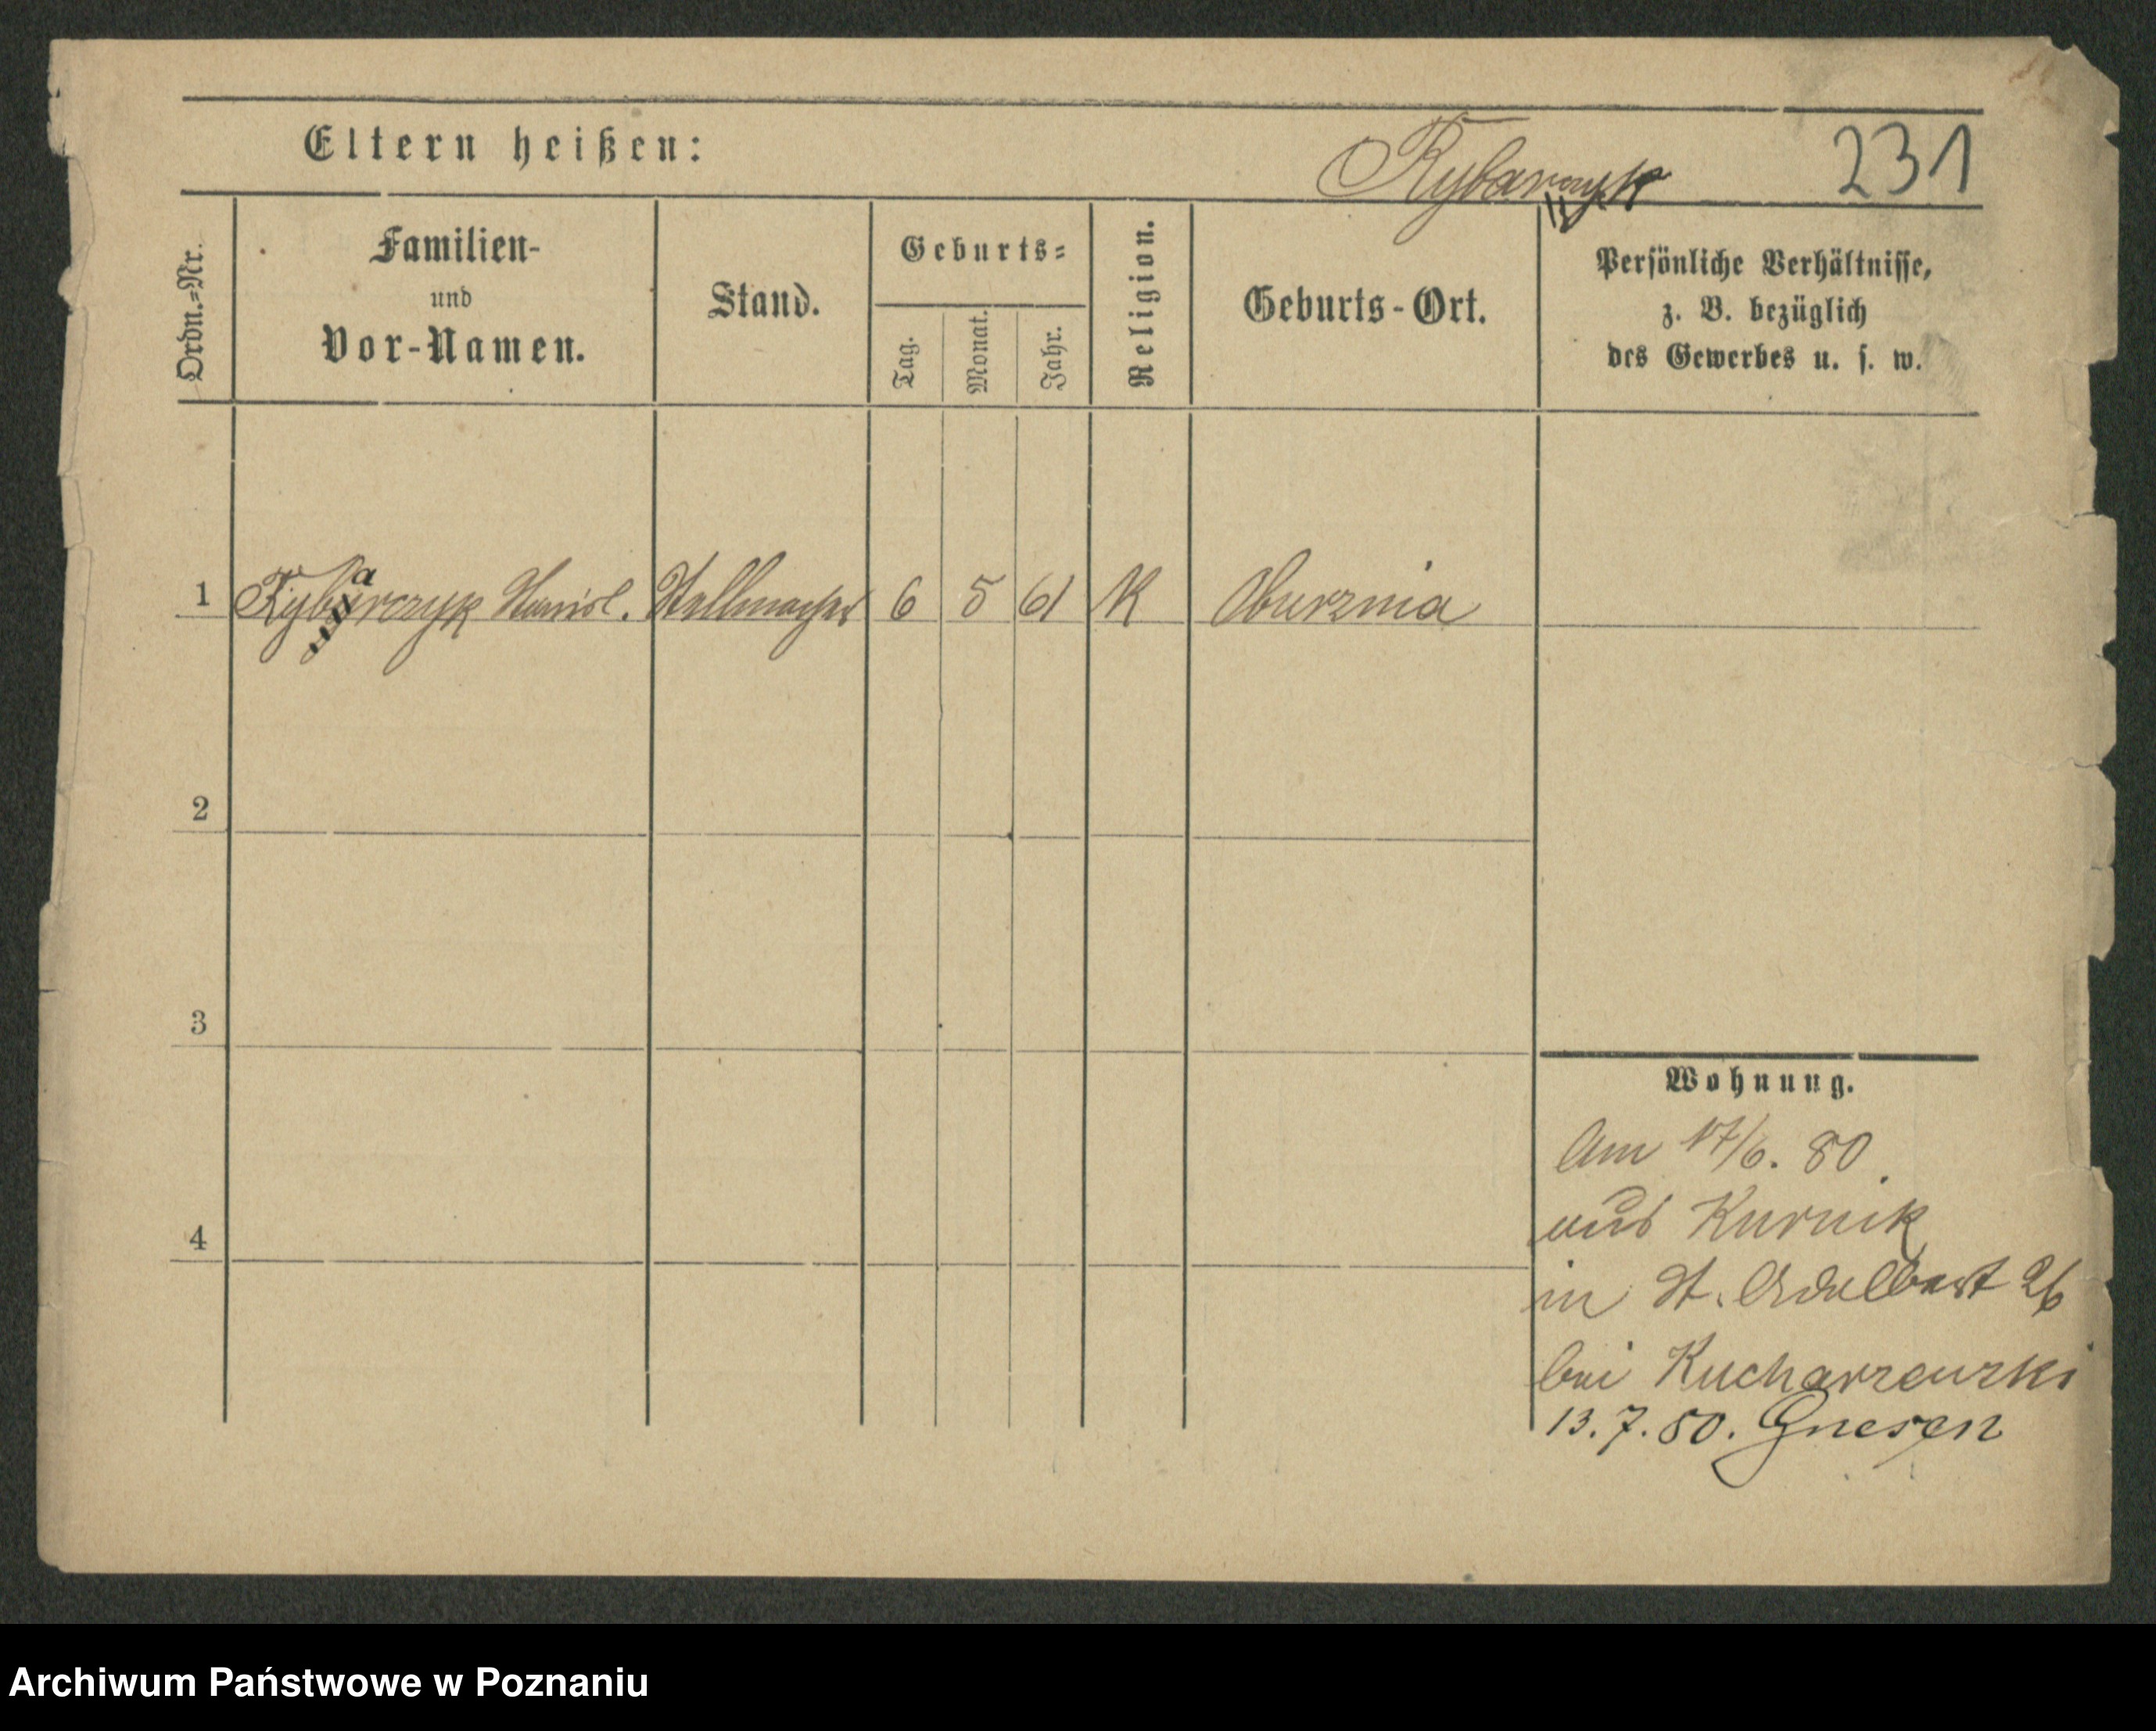 Eltern heißen: Rybarczyk 231
Ordn.-Nr.
Familien-
und
Vor-Namen.
Stand.
Geburts-
Tag.
Monat.
Jahr.
Religion.
Geburts-Ort.
Persönliche Verhältnisse,
z. B. bezüglich
des Gewerbes u. s. w.
1 Rybarczyk Stanisl. 6 5 61 K
2
3
4
Wohnung.
Am 17/6. 80.
aus Kurnik
in St. Adelbert 26
bei Kucharzewski
13.7.80. Gnesen
Archiwum Państwowe w Poznaniu